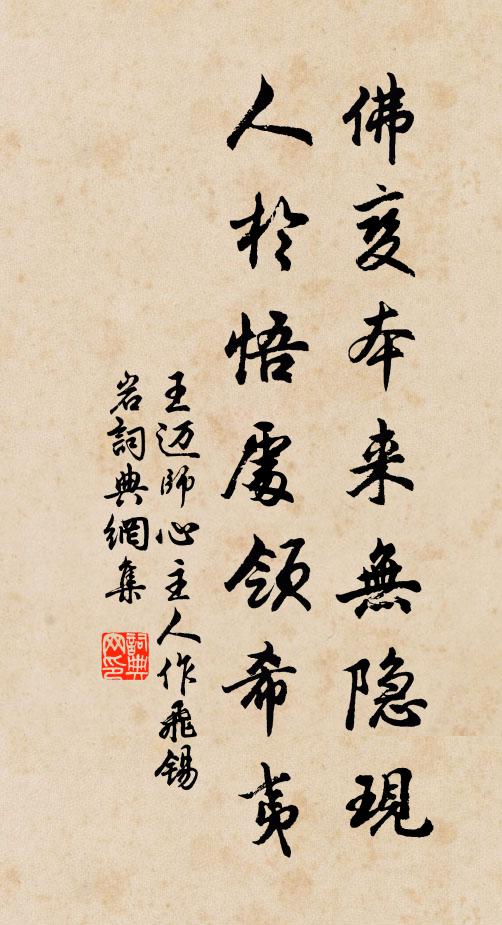 佛变本来無隐現
人於悟處領希夷
王迈師心主人作飛錫
岩詞典網集
詞典
网印